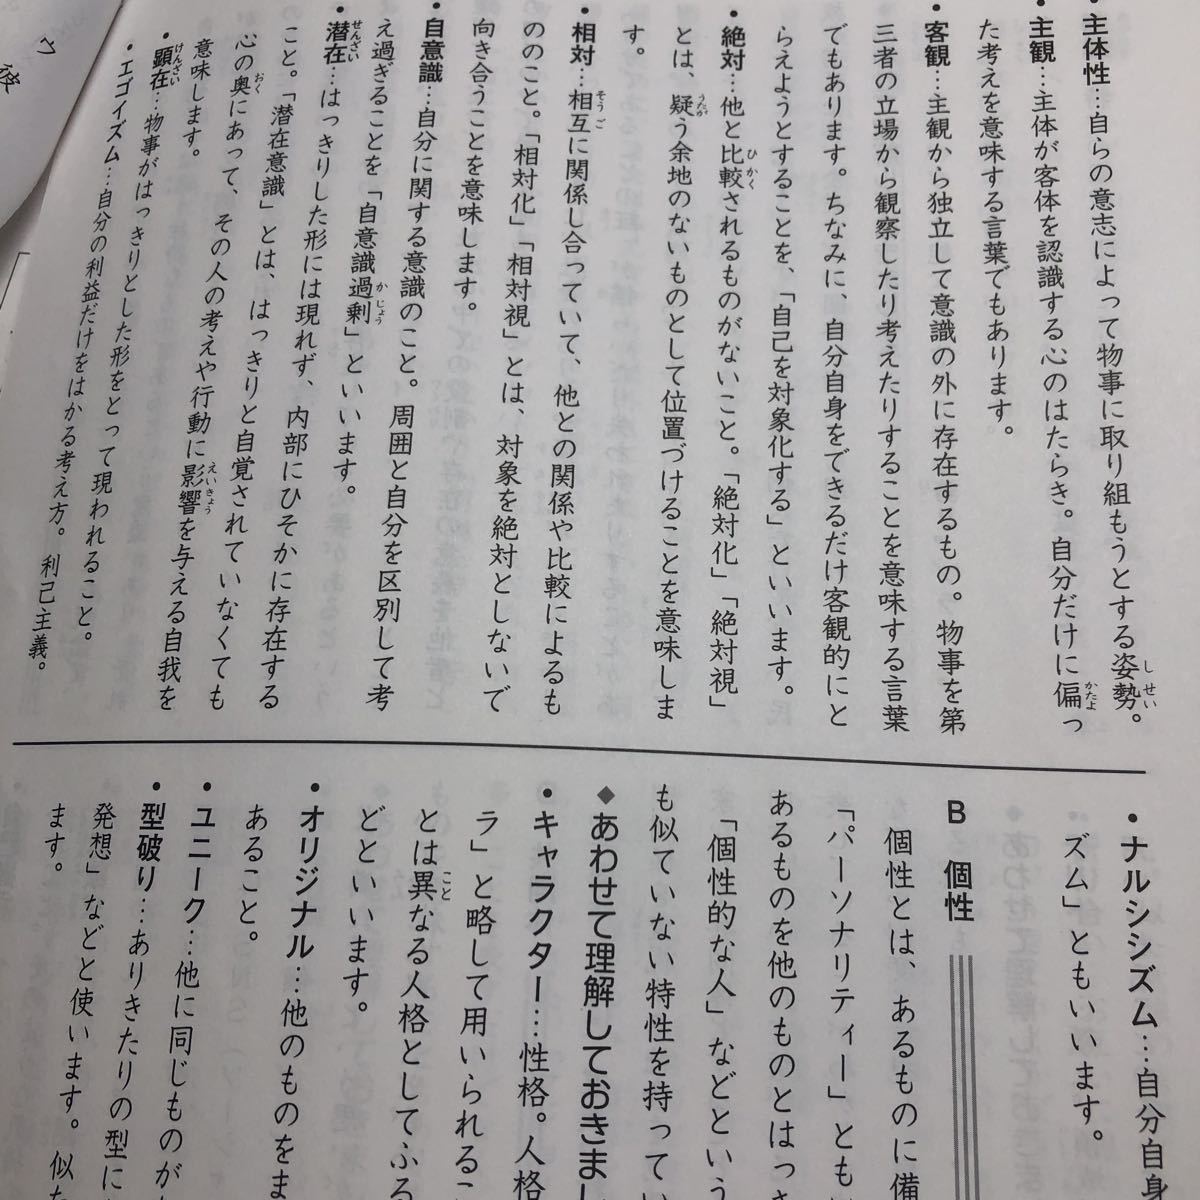 ・主体性…自らの意志によって物事に取り組もうとする姿勢。
・主観…主体が客体を認識する心のはたらき。自分だけに偏っ
た考えを意味する言葉でもあります。
・客観…主観から独立して意識の外に存在するもの。物事を第
三者の立場から観察したり考えたりすることを意味する言葉
でもあります。ちなみに、自分自身をできるだけ客観的にと
らえようとすることを、「自己を対象化する」といいます。
・絶対…他と比較されるものがないこと。「絶対化」「絶対視」
とは、疑う余地のないものとして位置づけることを意味しま
す。
・相対…相互に関係し合っていて、他との関係や比較によるも
ののこと。「相対化」「相対視」とは、対象を絶対としないで
向き合うことを意味します。
・自意識…自分に関する意識のこと。周囲と自分を区別して考
え過ぎることを「自意識過剰」といいます。
・潜在…はっきりした形には現れず、内部にひそかに存在する
こと。「潜在意識」とは、はっきりと自覚されていなくても
心の奥にあって、その人の考えや行動に影響を与える自我を
意味します。
・顕在…物事がはっきりとした形をとって現われること。
・エゴイズム…自分の利益だけをはかる考え方。利己主義。
・ナルシシズム…自分自身
ズム」ともいいます。
B 個性
個性とは、あるものに備
「パーソナリティー」とも
あるものを他のものとはっさ
「個性的な人」などという
も似ていない特性を持ってい
◆あわせて理解しておきまし
・キャラクター…性格。人格
ラ」と略して用いられるこ
とは異なる人格としてふる
どといいます。
・オリジナル…他のものをま
あること。
・ユニーク…他に同じものが
・型破り…ありきたりの型に
発想」などと使います。似た
ます。